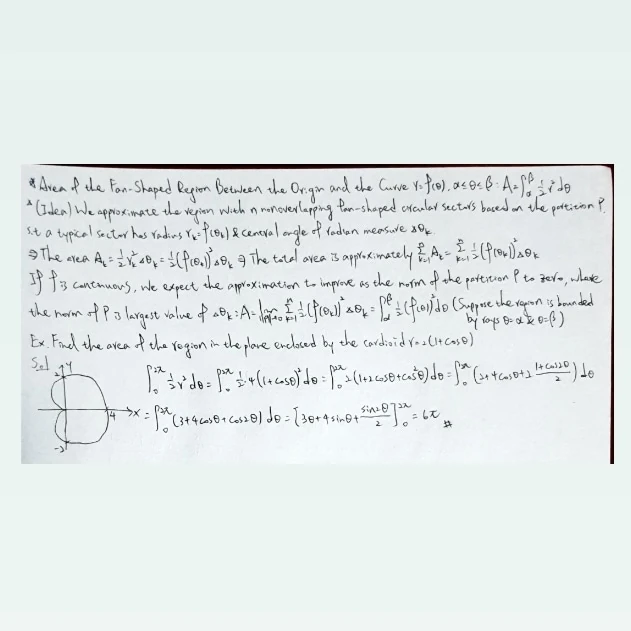 * Area of the Fan-Shaped Region Between the Origin and the Curve r=f(θ), α≤θ≤β: A=∫_α^β ½r²dθ
* (Idea) We approximate the region with n nonoverlapping fan-shaped circular sectors based on the partition P.
s.t a typical sector has radius r_k=f(θ_k) & central angle of radian measure Δθ_k
⇒ The area A_k=½r_k²Δθ_k=½(f(θ_k))²Δθ_k ⇒ The total area is approximately Σ_{k=1}^n A_k=Σ_{k=1}^n ½(f(θ_k))²Δθ_k
If f is continuous, we expect the approximation to improve as the norm of the partition P to zero, where
the norm of P is largest value of Δθ_k: A=lim_{‖P‖→0} Σ_{k=1}^n ½(f(θ_k))²Δθ_k=∫_α^β ½(f(θ))²dθ (Suppose the region is bounded
by rays θ=α & θ=β)
Ex. Find the area of the region in the plane enclosed by the cardioid r=2(1+cosθ)
Sol
y
2
∫_0^{2π} ½r²dθ=∫_0^{2π} ½·4(1+cosθ)²dθ=∫_0^{2π} 2(1+2cosθ+cos²θ)dθ=∫_0^{2π} (2+4cosθ+2 (1+cos2θ)/2)dθ
4 x
=∫_0^{2π} (3+4cosθ+cos2θ)dθ=[3θ+4sinθ+ sin2θ/2]_0^{2π}=6π #
-2